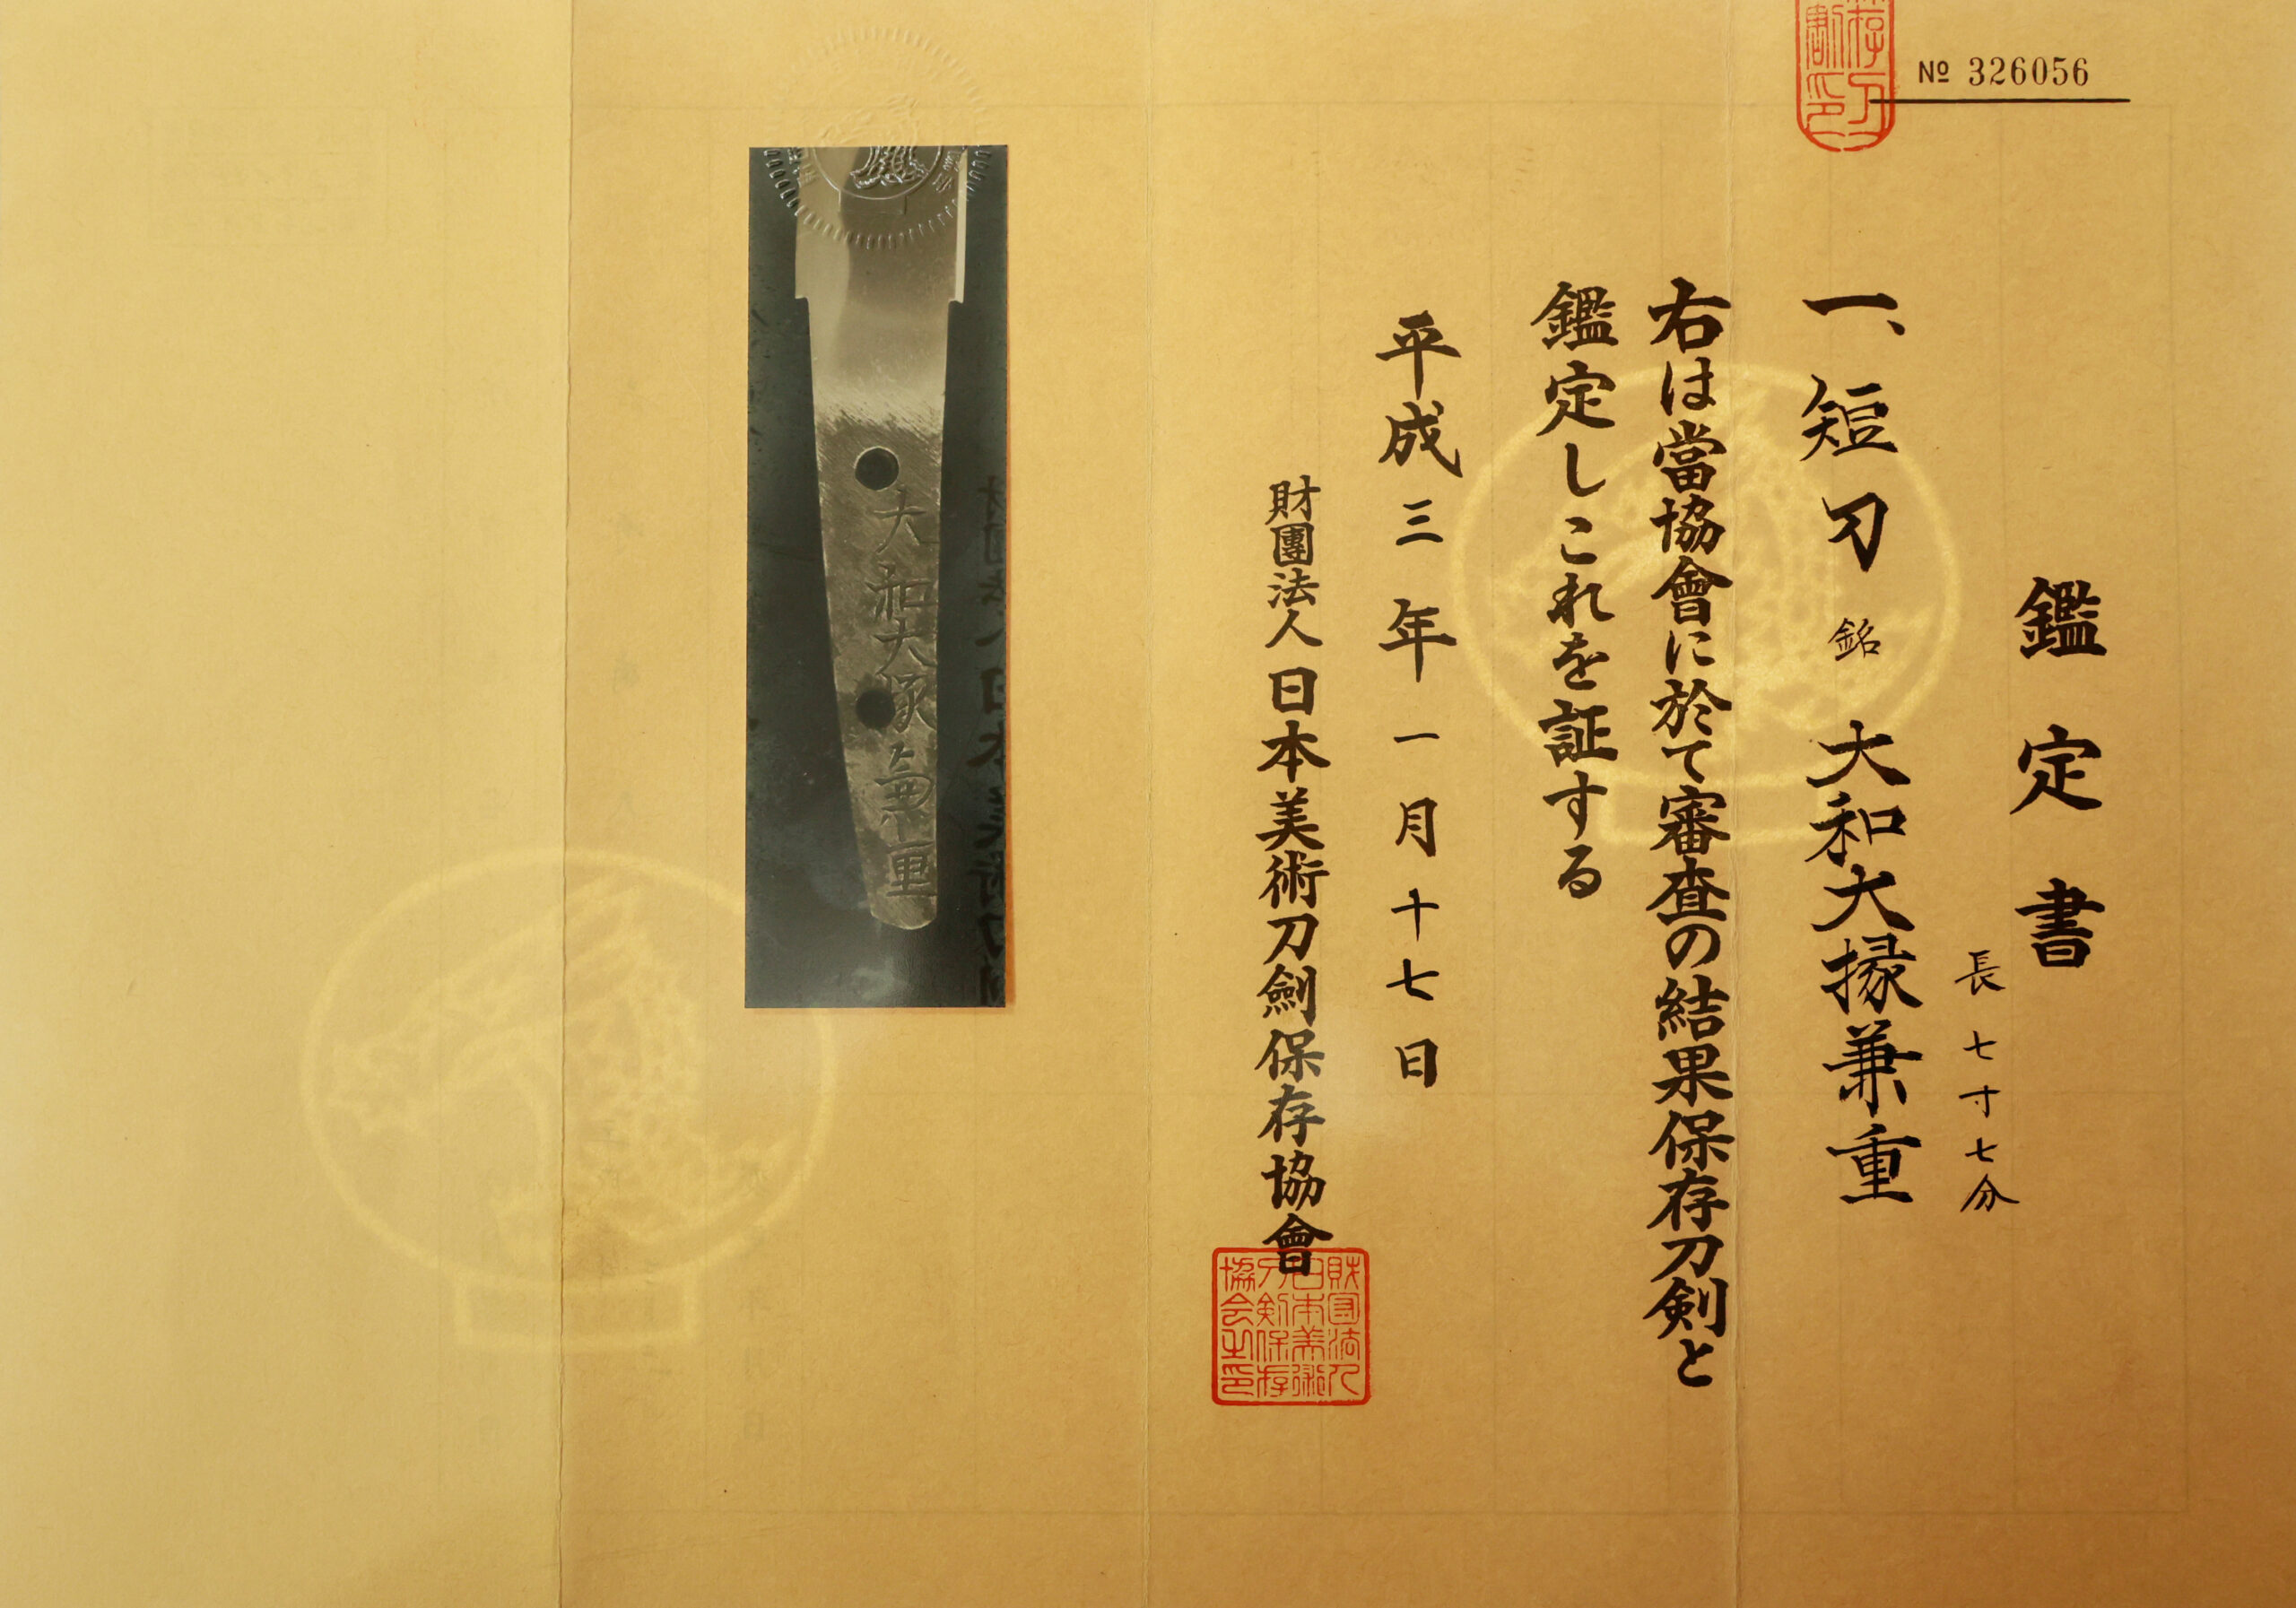 № 326056
鑑定書
長七寸七分
一、短刀 銘 大和大掾兼重
右は當協會に於て審査の結果保存刀剣と
鑑定しこれを証する
平成三年一月十七日
財團法人日本美術刀劍保存協會
財団法人
日本美術
刀剣保存
協会之印
大和大掾兼重